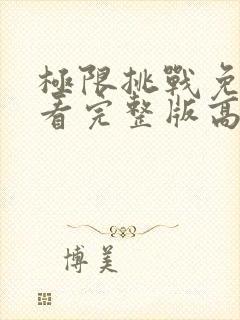 極限挑戰免
看完整版高
博美